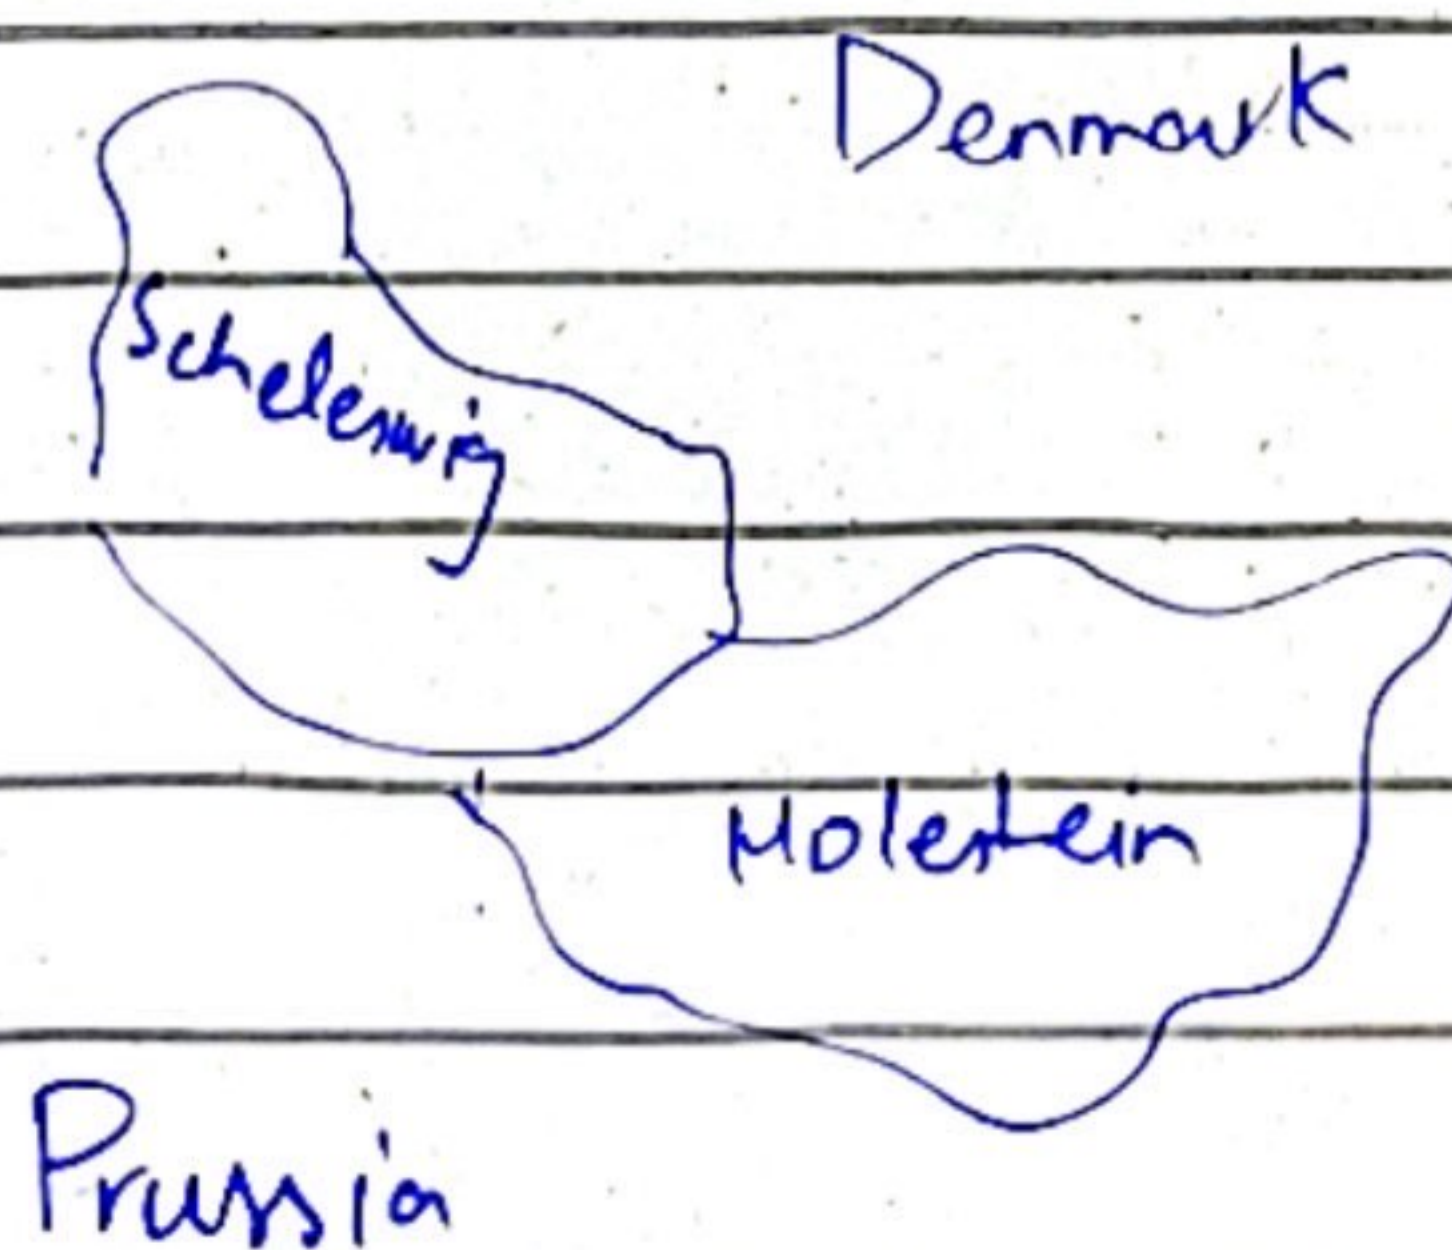 Denmark
Scheleswig
Holestein
Prussia